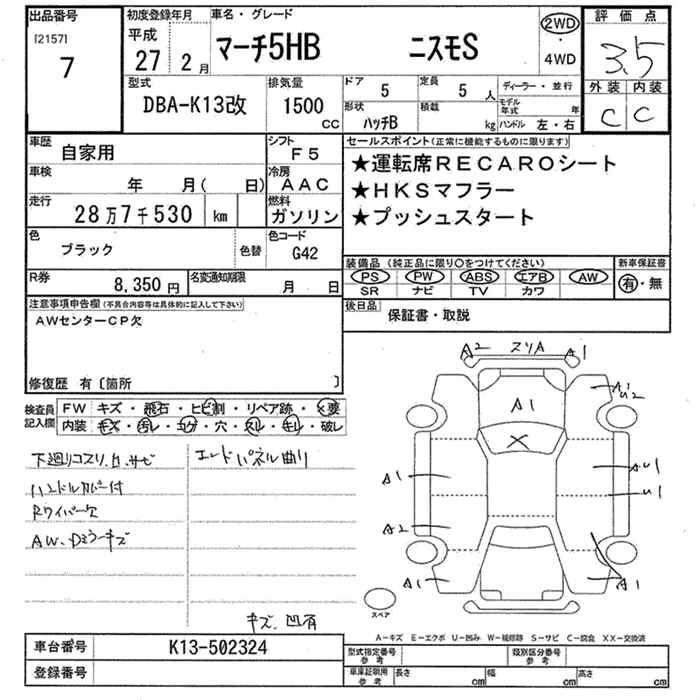 出品番号 初度登録年月 車名・グレード 2WD・4WD 評価点
[2157] 7 平成 27 2月 マーチ5HB ニスモS 3.5
型式 排気量 ドア 5 定員 5人 ディーラー・並行 外装 内装
DBA-K13改 1500CC 形状 ハッチB 積載 kg モデル年式 年 ハンドル 左・右 C C
車歴 自家用 シフト F5 セールスポイント(正常に機能するものに限ります)
車検 年 月( 日) 冷房 AAC ★運転席RECAROシート
走行 28万7千530 km 燃料 ガソリン ★HKSマフラー
★プッシュスタート
色 ブラック 色替 色コード G42
装備品(純正品に限り○をつけてください) 新車保証書
R券 8,350円 名変通知期限 月 日 PS PW ABS エアB AW 有・無
SR ナビ TV カワ
注意事項申告欄(不具合内容等は具体的に記入して下さい) 後日品 保証書・取説
AWセンターCP欠
修復歴 有〔箇所 〕
検査員記入欄 FW キズ・飛石・ヒビ割・リペア跡・×要
内装 キズ・汚レ・コゲ・穴・スレ・キレ・破レ
下廻りコスリ.凸.サビ エンドパネル曲り
ハンドルカバー付
Rワイパー欠
AW、Dミラーキズ
キズ、凹有
A2 スリA A1
A1 A1 U2
X
A1 AU1
U1
A2
A1 A1
スペア
A-キズ E-エクボ U-凹み W-補修跡 S-サビ C-腐食 XX-交換済
車台番号 K13-502324 型式指定番号 参考 類別区分番号 参考
登録番号 車庫証明用 参考 長さ cm 幅 cm 高さ cm